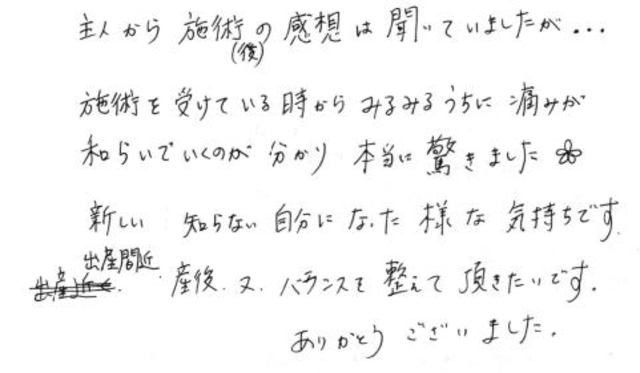 主人から施術(後)の感想は聞いていましたが...
施術を受けている時からみるみるうちに痛みが
和らいでいくのが分かり本当に驚きました
新しい 知らない自分になった様な気持ちです
出産間近. 産後. 又. バランスを整えて頂きたいです.
ありがとうございました.